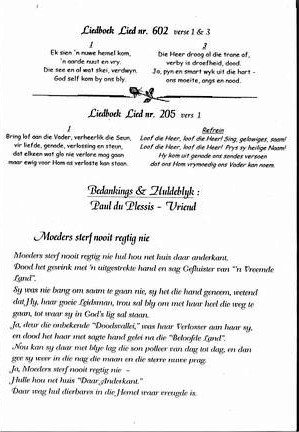 Liedboek Lied nr. 602 verse 1 & 3
1
Ek sien 'n nuwe hemel kom,
'n aarde nuut en vry.
Die see en al wat skei, verdwyn.
God self kom by ons bly.
3
Die Heer droog al die trane af,
verby is droefheid, dood.
Ja, pyn en smart wyk uit die hart -
ons moeite, angs en nood.
Liedboek Lied nr. 205 vers 1
1
Bring lof aan die Vader, verheerlik die Seun,
vir liefde, genade, verlossing en steun,
dat elkeen wat glo nie verlore mag gaan
maar ewig voor Hom as verloste kan staan.
Refrein
Loof die Heer, loof die Heer! Sing, gelowiges, saam!
Loof die Heer, loof die Heer! Prys sy heilige Naam!
Hy kom uit genade ons sondes versoen
dat ons Hom vrymoedig ons Vader kan noem.
Bedankings & Huldeblyk :
Paul du Plessis - Vriend
Moeders sterf nooit regtig nie
Moeders sterf nooit regtig nie hul hou net huis daar anderkant.
Dood het gewink met 'n uitgestrekte hand en sag Gefluister van "'n Vreemde
Land".
Sy was nie bang om saam te gaan nie, sy het die hand geneem, wetend
dat Hy, haar goeie Leidsman, trou sal bly om met haar heel die weg te
gaan, tot waar sy in God's lig sal staan.
Ja, deur die onbekende "Doodsvallei," was haar Verlosser aan haar sy,
en dood het haar met sagte hand gelei na die "Beloofde Land".
Nou kan sy daar met blye lag die son
van dag tot dag, en dan
gee sy weer in die nag die maan en die sterre nuwe prag.
Ja, Moeders sterf nooit regtig nie -
Hulle hou net huis "Daar Anderkant."
Daar wag hul dierbares in die Hemel waar vreugde is.